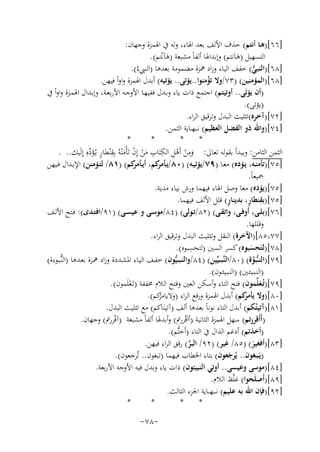 [٦٦] (هـا أنتم) حذف الألف بعد الهاء، وله في الهمزة وجهان:
التسهيل (هـانتم) وإبدالها ألفاً مشبعة (هـآنْتُم).
[٦٨] (النبيُّ) خفف الياء وزاد همزة مضمومة بعدها (النبيءُ).
[٦٨] (المؤمنين) (٧٣/ولا تُؤمنوا..يُؤتى.. يؤتيه) أبدل الهمزة واواً فيهن.
(أن يُؤتى.. أوتيتم) اجتمع ذات ياء وبدل ففيها الأوجه الأربعة، وإبدال الهمزة واواً في
(يوتى).
[٧٢] (آخره) تثليث البدل وترقيق الراء.
[٧٤] (والله ذو الفضل العظيم) نـهـاية الثمن.
* * * *
الثمن الثامن: ويبدأ بقوله تعالى: وَمِنْ أَهْلِ الْكِتَابِ مَنْ إِنْ تَأْمَنْهُ بِقِنْطَارٍ يُؤَدِّهِ إِلَيْكَ.. .
[٧٥] (تأمنه، يؤده) معاً (٧٩/يؤتيه) (٨٠/يأمركم، أيأمركم) (٨١/ لتؤمنن) الإبدال فيهن
جميعاً.
[٧٥] (يؤده) معاً وصل الهاء فيهما ورش بياء مدية.
[٧٥] (بقنطار، بدينار) قلل الألف فيهما.
[٧٦] (بلى، أوفى، واتقى) (٨٢/تولى) (٨٤/موسى و عيسى) (٩١/افتدى): فتح الألف
وقللها.
[٧٧، ٨٥] (الآخرة) النقل وتثليث البدل وترقيق الراء.
[٧٨] (لتحسَبوه) كسر السين (لتحسِبوه).
[٧٩] (النُّبوَّة) (٨٠/النَّبـيِّـين) (٨٤/والنبـيُّون) خفف الياء المشددة وزاد همزة بعدها (النُّبوءة)
(النبيئين) (النبيئون).
[٧٩] (تُعلِّمون) فتح التاء وأسكن العين وفتح اللام مخففة (تَعْلَمون).
[٨٠] (ولا يأمركم) أبدل الهمزة ورفع الراء (ولايامرُكم).
[٨١] (آتيتُكم) أبدل التاء نوناً بعدها ألف (آتينٰاكم) مع تثليث البدل.
(أأقررتم) سهل الهمزة الثانية (أاْقْررتم) وأبدلها ألفاً مشبعة (آقْررتم) وجهان.
(أخذتم) أدغم الذال في التاء (أختُّم).
[٨٣] (أفغير) (٨٥/ غير) (٩٢/ البرَّ) رقق الراء فيهن.
(يَبغون.. يُرجَعون) بتاء الخطاب فيهما (تبغون.. تُرجعون).
[٨٤] (موسى وعيسى.. أوتي النبيئون) ذات ياء وبدل فيه الأوجه الأربعة.
[٨٩] (أصـلَحوا) غلَّظ اللام.
[٩٢] (فإن الله به عليم) نـهـاية الجزء الثالث.
* * * *
-٧٨-